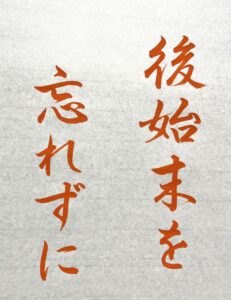 後始末を
忘れずに